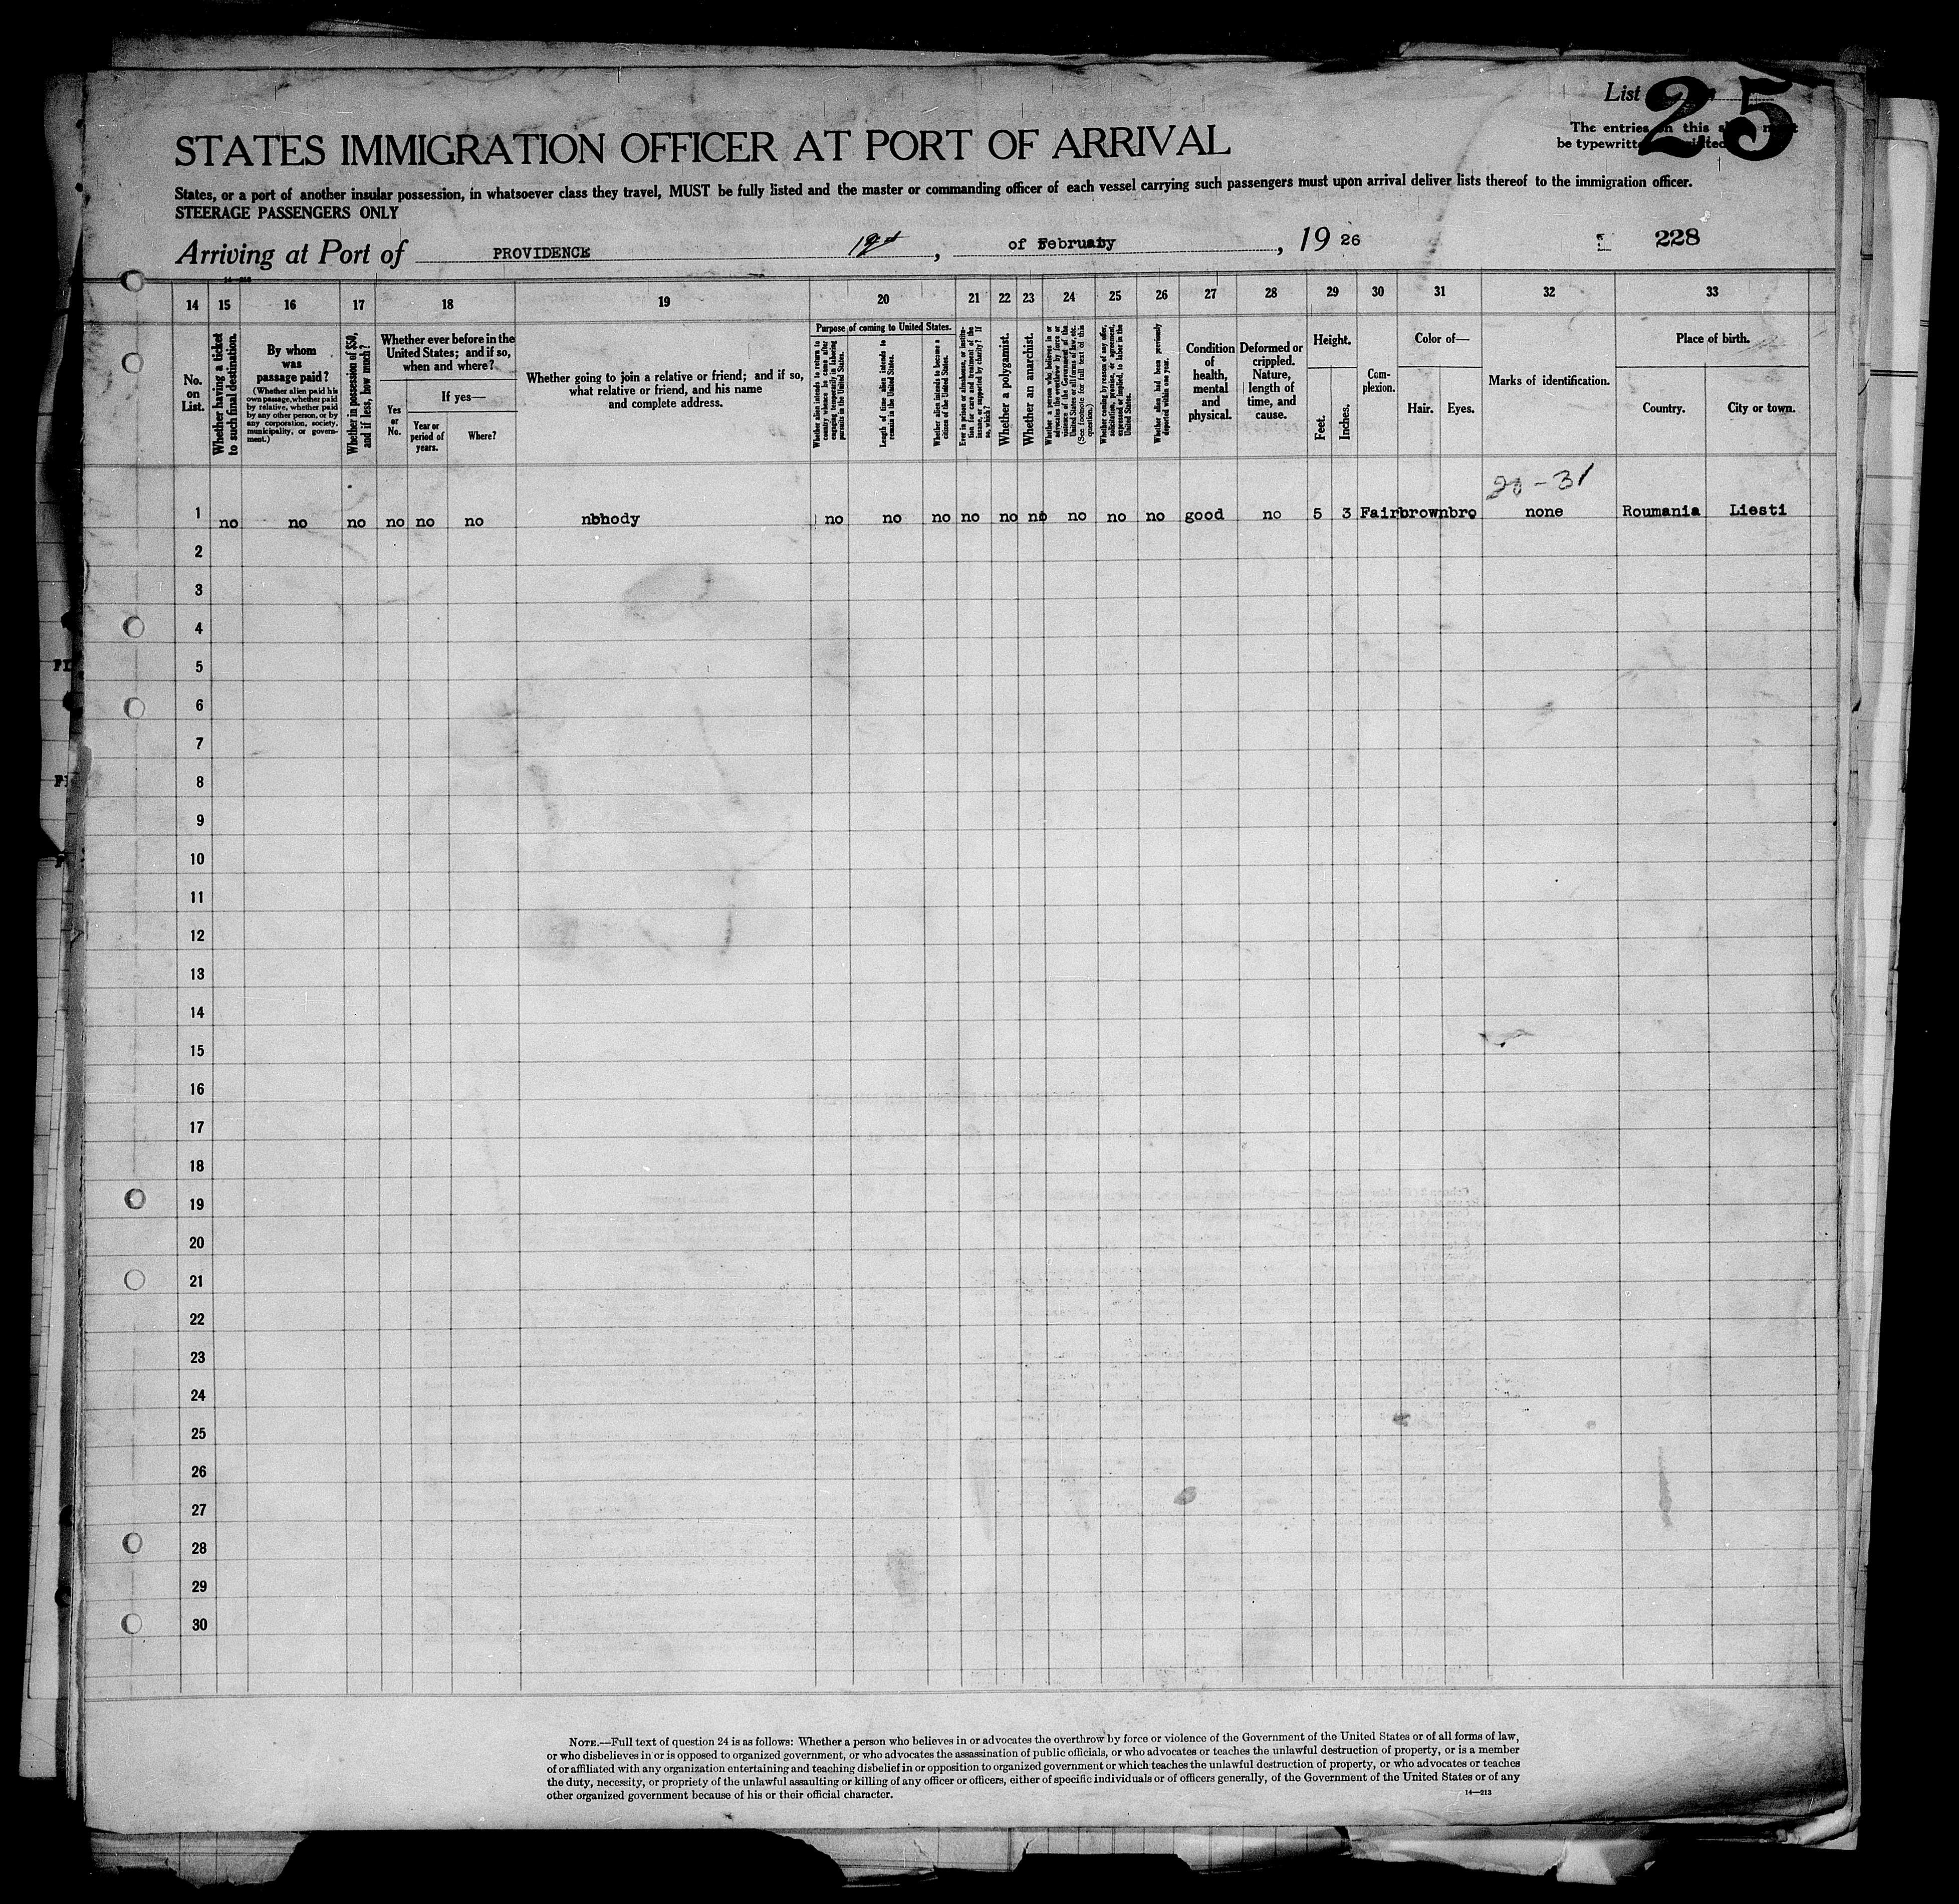 List
25
The entries on this
be typewritten
STATES IMMIGRATION OFFICER AT PORT OF ARRIVAL
States, or a port of another insular possession, in whatsoever class they travel, MUST be fully listed and the master or commanding officer of each vessel carrying such passengers must upon arrival deliver lists thereof to the immigration officer.
STEERAGE PASSENGERS ONLY
Arriving at Port of PROVIDENCE , of February , 19 26 228
14 15 16 17 18 19 20 21 22 23 24 25 26 27 28 29 30 31 32 33
No. on List.
Whether having a ticket to such final destination.
By whom was passage paid?
(Whether alien paid his own passage, whether paid by relative, whether paid by any other person, or by any corporation, society, municipality, or government.)
Whether in possession of $50, and if less, how much?
Whether ever before in the United States; and if so, when and where?
Yes or No.
If yes—
Year or period of years.
Where?
Whether going to join a relative or friend; and if so, what relative or friend, and his name and complete address.
Purpose of coming to United States.
Whether alien intends to return to country whence he came after engaging temporarily in laboring pursuits in the United States.
Length of time alien intends to remain in the United States.
Whether alien intends to become a citizen of the United States.
Ever in prison or almshouse, or institution for care and treatment of the insane, or supported by charity? If so, which?
Whether a polygamist.
Whether an anarchist.
Whether a person who believes in or advocates the overthrow by force or violence of the Government of the United States or all forms of law, etc. (See footnote for full text of this question.)
Whether coming by reason of any offer, solicitation, promise, or agreement, expressed or implied, to labor in the United States.
Whether alien had been previously deported within one year.
Condition of health, mental and physical.
Deformed or crippled. Nature, length of time, and cause.
Height.
Feet.
Inches.
Complexion.
Color of—
Hair.
Eyes.
Marks of identification.
Place of birth.
Country.
City or town.
20-31
1 no no no no no no nbhody no no no no no no no no no good no 5 3 Fair brown bro none Roumania Liesti
2
3
4
5
6
7
8
9
10
11
12
13
14
15
16
17
18
19
20
21
22
23
24
25
26
27
28
29
30
NOTE.—Full text of question 24 is as follows: Whether a person who believes in or advocates the overthrow by force or violence of the Government of the United States or of all forms of law,
or who disbelieves in or is opposed to organized government, or who advocates the assassination of public officials, or who advocates or teaches the unlawful destruction of property, or is a member
of or affiliated with any organization entertaining and teaching disbelief in or opposition to organized government or which teaches the unlawful destruction of property, or who advocates or teaches
the duty, necessity, or propriety of the unlawful assaulting or killing of any officer or officers, either of specific individuals or of officers generally, of the Government of the United States or of any
other organized government because of his or their official character.
14—213